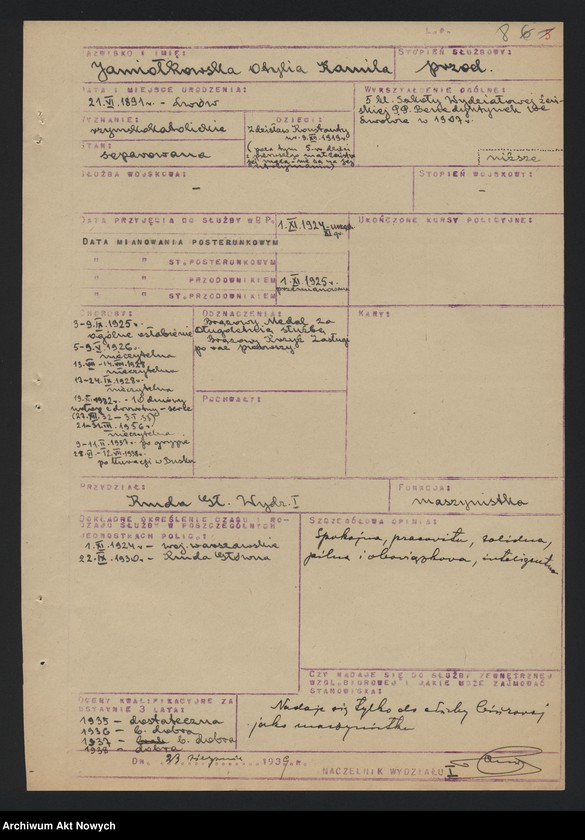 L.P. 863
NAZWISKO I IMIĘ:
STOPIEŃ SŁUŻBOWY:
Jamiołkowska Otylia Kamila
przod.
DATA I MIEJSCE URODZENIA:
21.VI.1891r. - Lwów
WYKSZTAŁCENIE OGÓLNE:
5 kl. Szkoły Wydziałowej Żeń-
skiej P.P. Benedyktynek we
Lwowie w 1907r.
niższe
WYZNANIE:
rzymskokatolickie
DZIECI:
Zdzisław Konstanty
(poza tym 5-ro dzieci
z pierwszego małżeństwa
STAN:
separowana
SŁUŻBA WOJSKOWA:
-
STOPIEŃ WOJSKOWY:
-
DATA PRZYJĘCIA DO SŁUŻBY W P.P.
1.XI.1924
UKOŃCZONE KURSY POLICYJNE:
DATA MIANOWANIA POSTERUNKOWYM
" " ST.POSTERUNKOWYM
" " PRZODOWNIKIEM
1.XI.1925r.
przemianowana
" " ST.PRZODOWNIKIEM
CHOROBY:
3-9.IX.1925r.
ogólne osłabienie
5-9.V.1926r.
nieczytelna
nieczytelna
12-24.IX.1928r.
nieczytelna
nieczytelna
9-11.II.1937r. po grypie
po kuracji w Busku
ODZNACZENIA:
Brązowy Medal za
Długoletnią służbę
Brązowy Krzyż Zasługi
po raz pierwszy
KARY:
POCHWAŁY:
PRZYDZIAŁ:
Kmda Gł. Wydz. I
FUNKCJA:
maszynistka
DOKŁADNE OKREŚLENIE CZASU I RO-
DZAJU SŁUŻBY W POSZCZEGÓLNYCH
JEDNOSTKACH POLICJ.:
1.XI.1924r. - woj. warszawskie
22.IX.1930r. - Kmda Główna
SZCZEGÓŁOWA OPINIA:
Spokojna, pracowita, solidna,
pilna i obowiązkowa, inteligentna
CZY NADAJE SIĘ DO SŁUŻBY ZEWNĘTRZNEJ
WZGL.BIUROWEJ I JAKIE MOŻE ZAJMOWAĆ
STANOWISKA:
Nadaje się tylko do służby biurowej
jako maszynistka
OCENY KWALIFIKACYJNE ZA
OSTATNIE 3 LATA:
1935 - dostateczna
1936 - b. dobra
1937 - b. dobra
1938 - dobra
Dn. 23 sierpnia 1939r.
NACZELNIK WYDZIAŁU I
Archiwum Akt Nowych